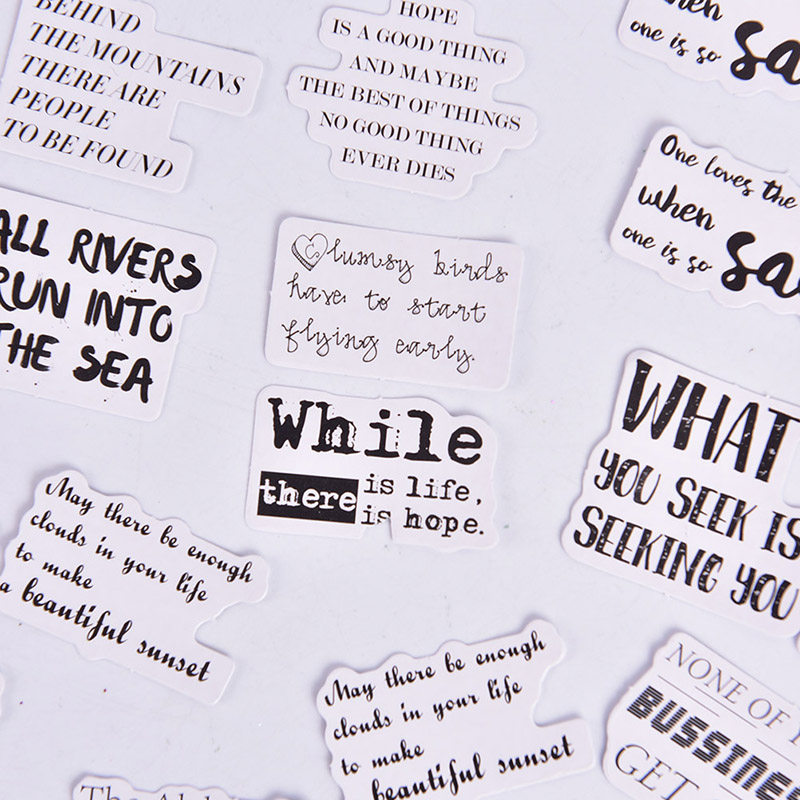 BEHIND
THE MOUNTAINS
THERE ARE
PEOPLE
TO BE FOUND
HOPE
IS A GOOD THING
AND MAYBE
THE BEST OF THINGS
NO GOOD THING
EVER DIES
when
one is so
One loves the
when
one is so
ALL RIVERS
RUN INTO
THE SEA
Clumsy birds
have to start
flying early.
While
there is life,
is hope.
WHAT
YOU SEEK IS
SEEKING YOU
May there be enough
clouds in your life
to make
a beautiful sunset
May there be enough
clouds in your life
to make
beautiful sunset
NONE OF
BUSSINE
GET
The